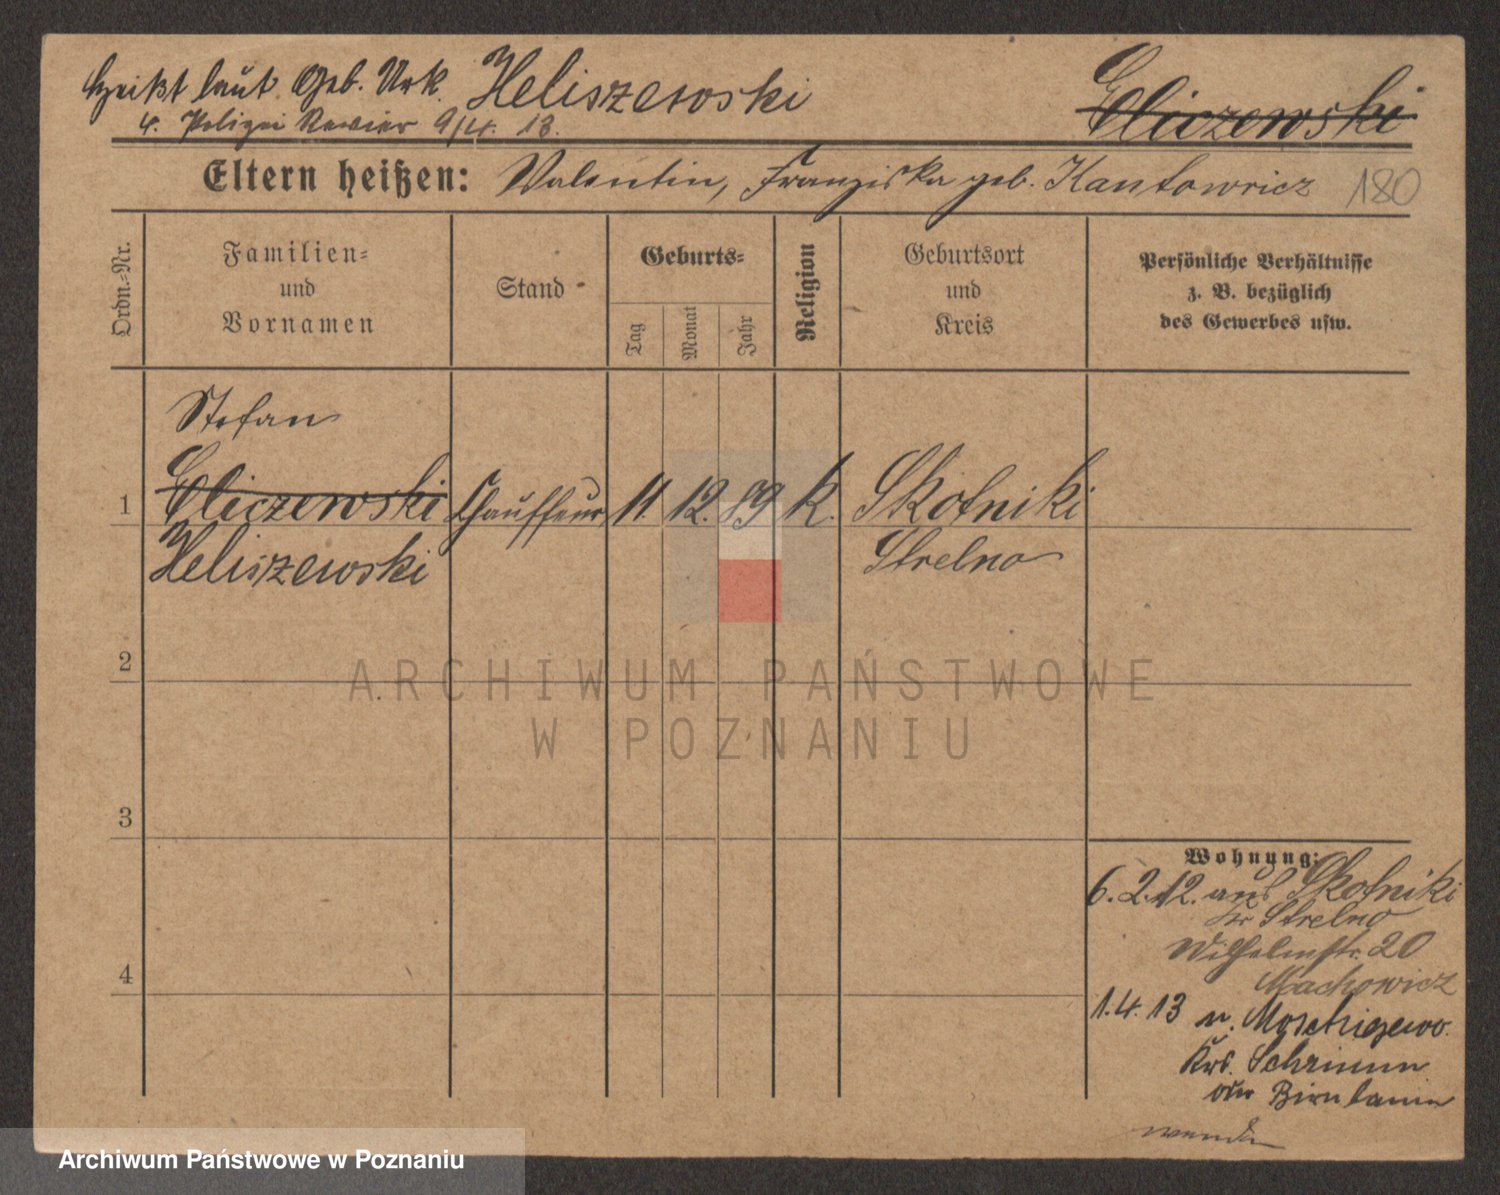 heißt laut Geb. Urk. Heliszewski
Eliczewski
4. Polizei Revier 9/4. 13.
Eltern heißen: Valentin, Franziska geb. Kantowicz 180
Ordn.-Nr.
Familien-
und
Vornamen
Stand
Geburts-
Tag
Monat
Jahr
Religion
Geburtsort
und
Kreis
Persönliche Verhältnisse
z. B. bezüglich
des Gewerbes usw.
Stefan
1 Eliczewski Chauffeur 11. 12. 89 k. Skotniki
Heliszewski Strelno
2
ARCHIWUM PAŃSTWOWE
W POZNANIU
3
Wohnung:
6.2.12. aus Skotniki
Kr Strelno
Wilhelmstr. 20
Machowicz
4
1.4.13 n.
Krs. Schrimm
oder Birnbaum
wenden
Archiwum Państwowe w Poznaniu